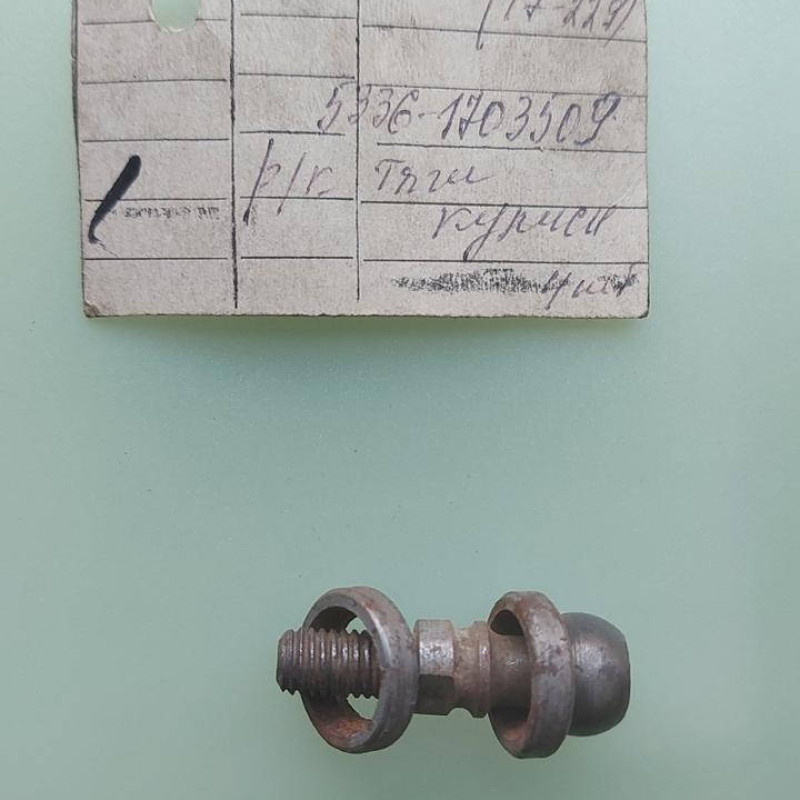 (17-229)
5336-1703509
р/к тяги
кулисы
4 шт